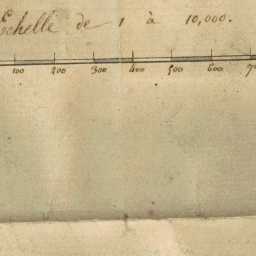 Echelle de 1 à 10,000.
100 200 300 400 500 600